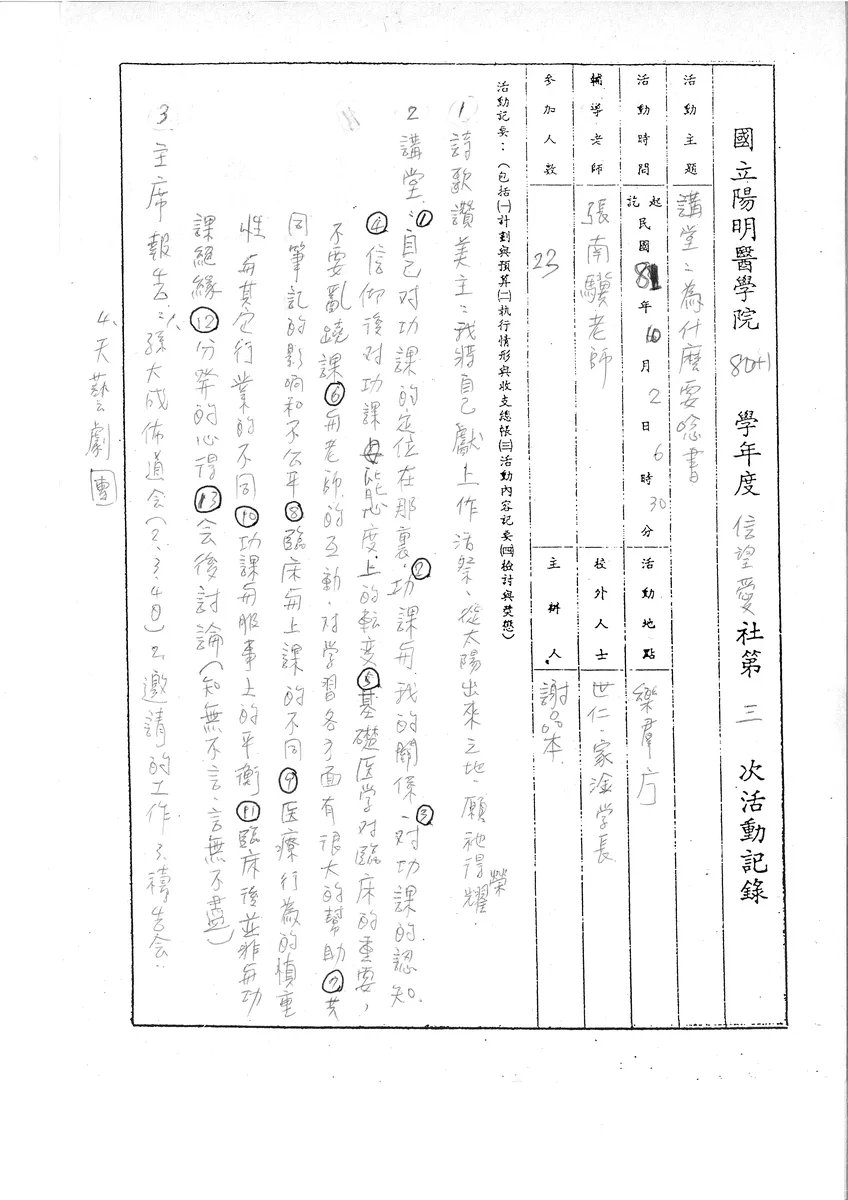 國立陽明醫學院 80+1 學年度 信望愛 社第 三 次活動記錄
活動主題 講堂：為什麼要唸書
活動時間 起訖 民國 81 年 10 月 2 日 6 時 30 分 活動地點 樂群廳
輔導老師 張南驥老師 校外人士 世仁、家淦学長
參加人數 23 主辦人 謝品本
活動記要：（包括㈠計劃與預算㈡執行情形與收支總帳㈢活動內容記要㈣檢討與獎懲）
1 詩歌讚美主：我將自己獻上作活祭、從太陽出來之地、願祂得榮耀.
2 講堂：①自己对功課的定位在那裏.②功課与我的關係、③对功課的認知.
④信仰後对功課態度上的転变⑤基礎医学对臨床的重要，
不要亂蹺課⑥与老師的互動、对学習各方面有很大的幫助⑦共
同筆記的影响和不公平⑧臨床与上課的不同⑨医療行為的慎重
性与其它行業的不同⑩功課与服事上的平衡⑪臨床後並非与功
課絕緣⑫分発的心得⑬会後討論（知無不言、言無不盡）
3 主席報告：1、孫大成佈道会（2、3、4日）2、邀請的工作 3、禱告会.
4、天藝劇團